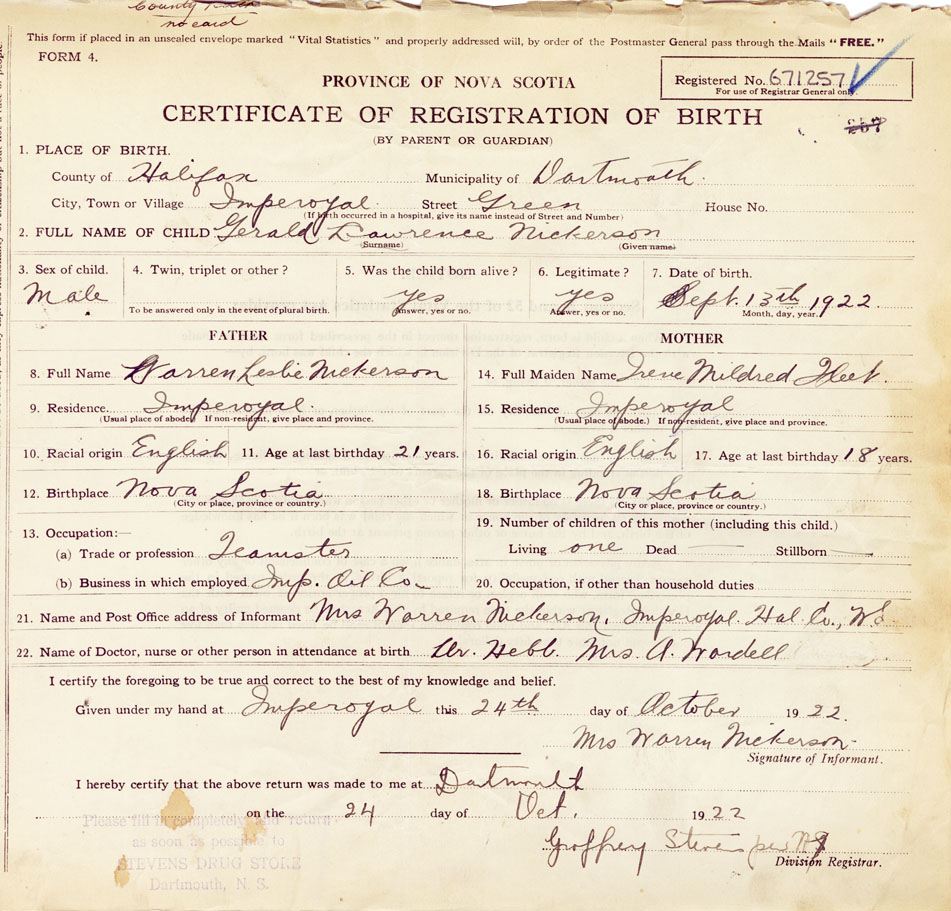 County
no card
This form if placed in an unsealed envelope marked "Vital Statistics" and properly addressed will, by order of the Postmaster General pass through the Mails "FREE."
FORM 4.
Registered No. 671257
For use of Registrar General only.
PROVINCE OF NOVA SCOTIA
CERTIFICATE OF REGISTRATION OF BIRTH
257
(BY PARENT OR GUARDIAN)
1. PLACE OF BIRTH.
County of Halifax Municipality of Dartmouth.
City, Town or Village Imperoyal Street Green House No.
(If birth occurred in a hospital, give its name instead of Street and Number)
2. FULL NAME OF CHILD Gerald Lawrence Nickerson
(Surname) (Given name)
3. Sex of child. 4. Twin, triplet or other? 5. Was the child born alive? 6. Legitimate? 7. Date of birth.
Male yes yes Sept. 13th 1922
To be answered only in the event of plural birth. Answer, yes or no. Answer, yes or no. Month, day, year.
FATHER MOTHER
8. Full Name Warren Leslie Nickerson 14. Full Maiden Name Irene Mildred Fleet.
9. Residence Imperoyal. 15. Residence Imperoyal
(Usual place of abode) If non-resident, give place and province. (Usual place of abode.) If non-resident, give place and province.
10. Racial origin English 11. Age at last birthday 21 years. 16. Racial origin English 17. Age at last birthday 18 years.
12. Birthplace Nova Scotia 18. Birthplace Nova Scotia
(City or place, province or country.) (City or place, province or country.)
13. Occupation:— 19. Number of children of this mother (including this child.)
(a) Trade or profession Teamster Living one Dead — Stillborn —
(b) Business in which employed Imp. Oil Co. 20. Occupation, if other than household duties
21. Name and Post Office address of Informant Mrs Warren Nickerson, Imperoyal. Hal. Co., N.S.
22. Name of Doctor, nurse or other person in attendance at birth Dr. Hebb. Mrs. A. Wardell
I certify the foregoing to be true and correct to the best of my knowledge and belief.
Given under my hand at Imperoyal this 24th day of October 1922.
Mrs Warren Nickerson
Signature of Informant.
I hereby certify that the above return was made to me at Dartmouth
on the 24 day of Oct. 1922
Please fill in completely and return
as soon as possible to
STEVENS DRUG STORE
Dartmouth, N. S.
Geoffrey Stevens per
Division Registrar.